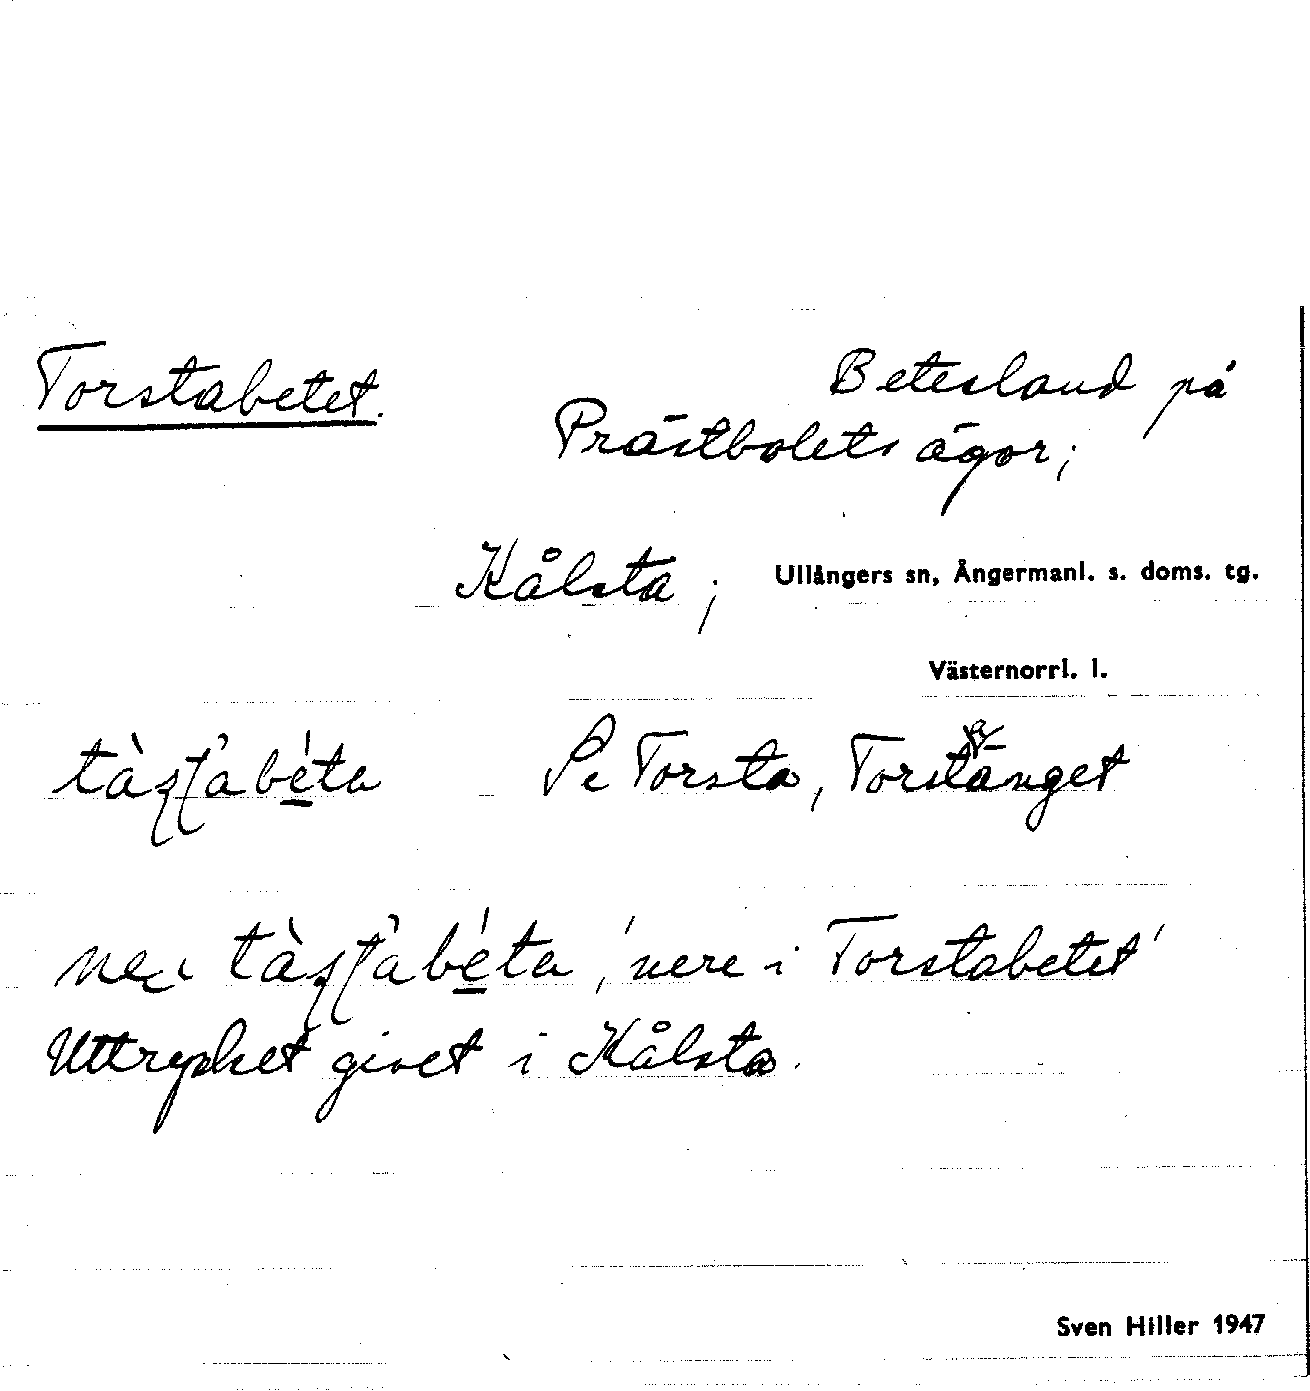 Torstabetet.
Betesland på
Prästbolets ägor;
Kålsta; Ullångers sn, Ångermanl. s. doms. tg.
Västernorrl. l.
Se Torsta, Torstänget
'nere i Torstabetet'
Uttrycket givet i Kålsta.
Sven Hiller 1947